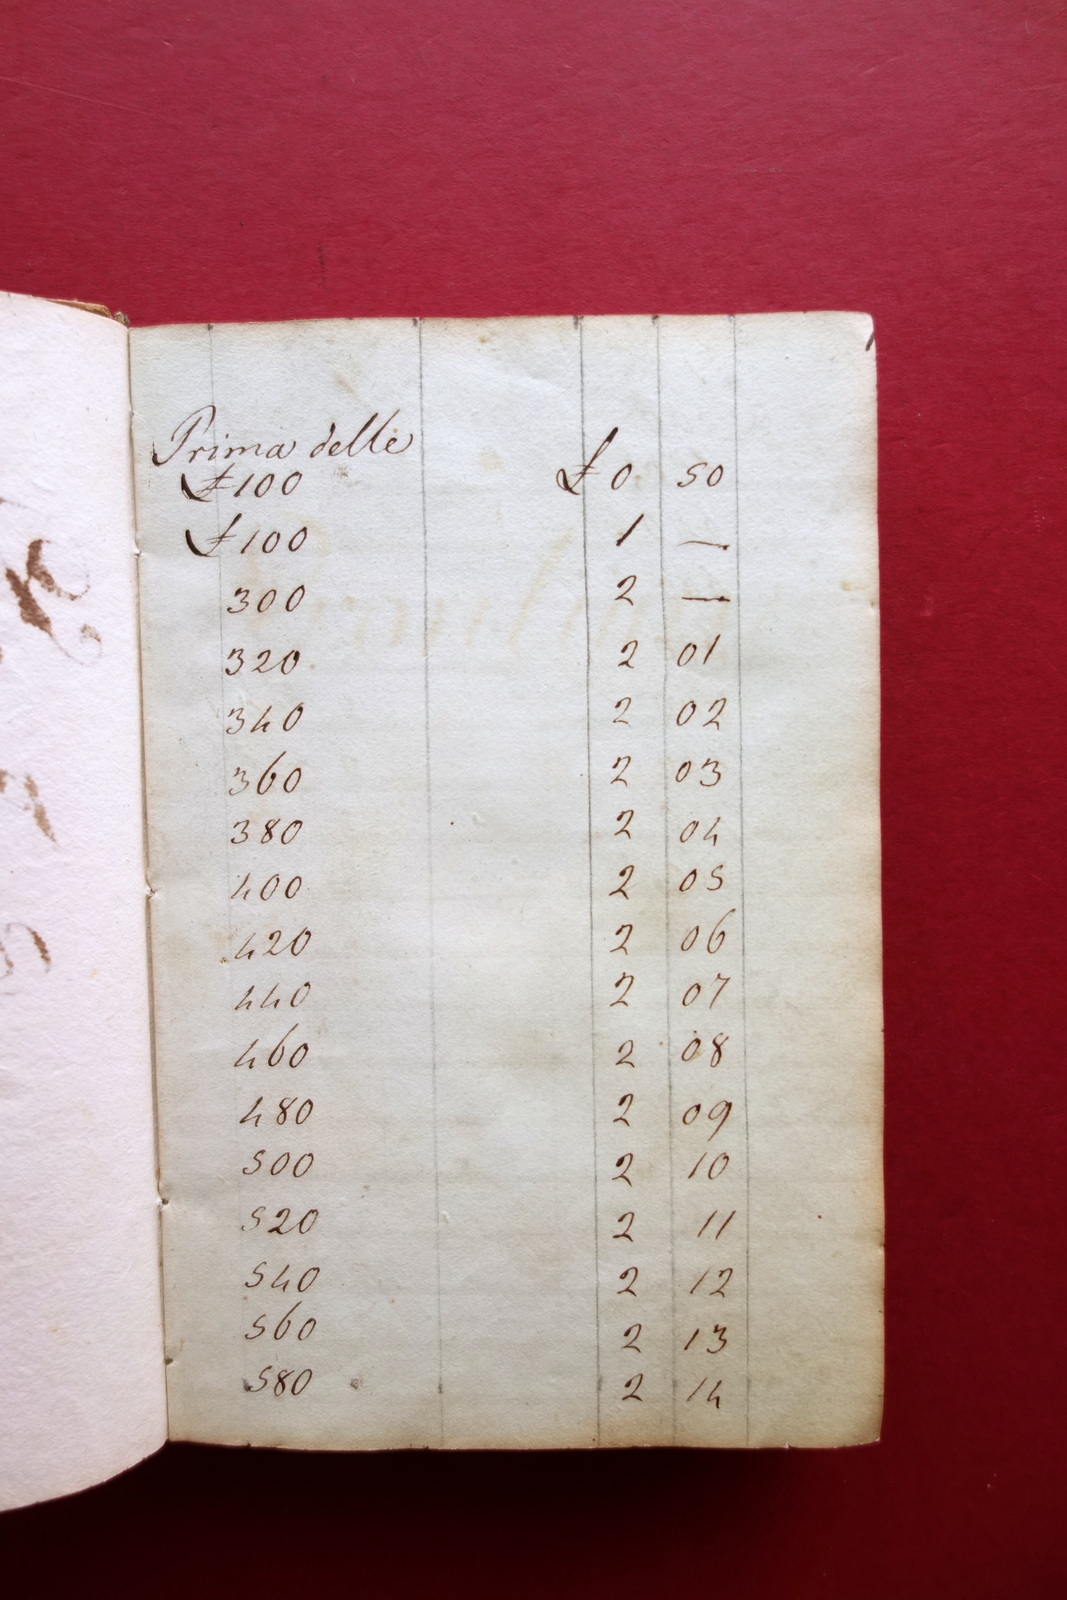 Prima delle
£100 £ 0 50
£100 1 —
300 2 —
320 2 01
340 2 02
360 2 03
380 2 04
400 2 05
420 2 06
440 2 07
460 2 08
480 2 09
500 2 10
520 2 11
540 2 12
560 2 13
580 2 14